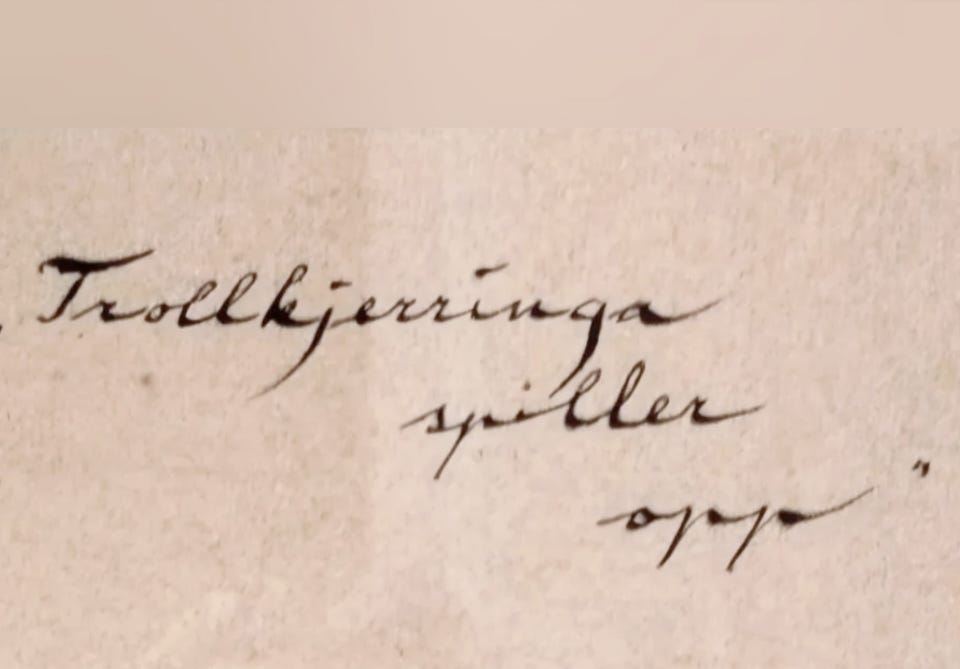 „Trollkjerringa
spiller
opp"